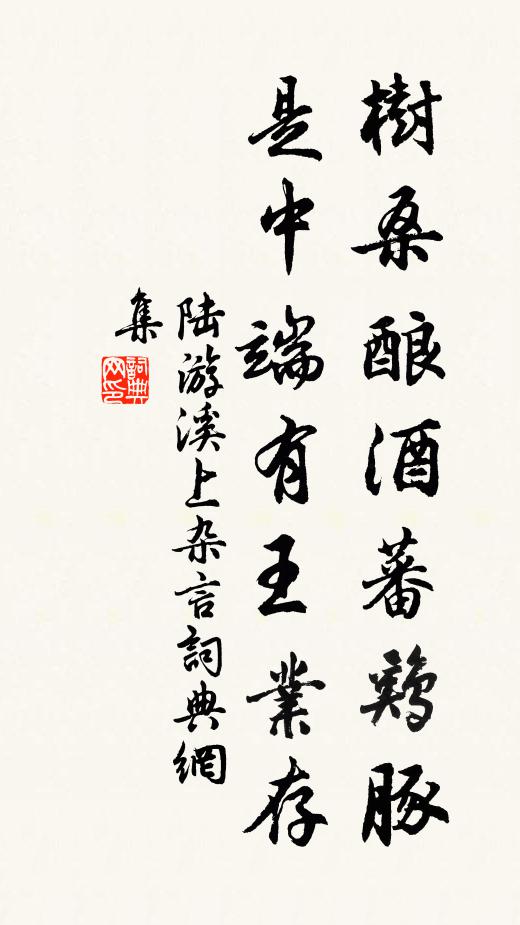 樹桑酿酒蕃鶏豚
是中端有王業存
陆游溪上杂言詞典網
集
詞典
网印